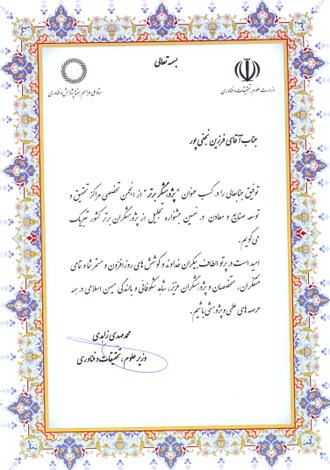 بسمه تعالی
وزارت علوم، تحقیقات و فناوری
ستاد ملی مراسم هفته پژوهش و فناوری
جناب آقای فرزین نجفی پور
توفیق جنابعالی را در کسب عنوان "پژوهشگر برتر" از انجمن تخصصی مراکز تحقیق و
توسعه صنایع و معادن در نهمین جشنواره تجلیل از پژوهشگران برتر کشور تبریک
می گویم.
امید است در پرتو الطاف بیکران خداوند و کوشش های روزافزون و مستمر شما و تمامی
متفکران، متخصصان و پژوهشگران عزیز، شاهد شکوفائی و بالندگی میهن اسلامی در همه
عرصه های علمی و پژوهشی باشیم.
محمد مهدی زاهدی
وزیر علوم، تحقیقات و فناوری